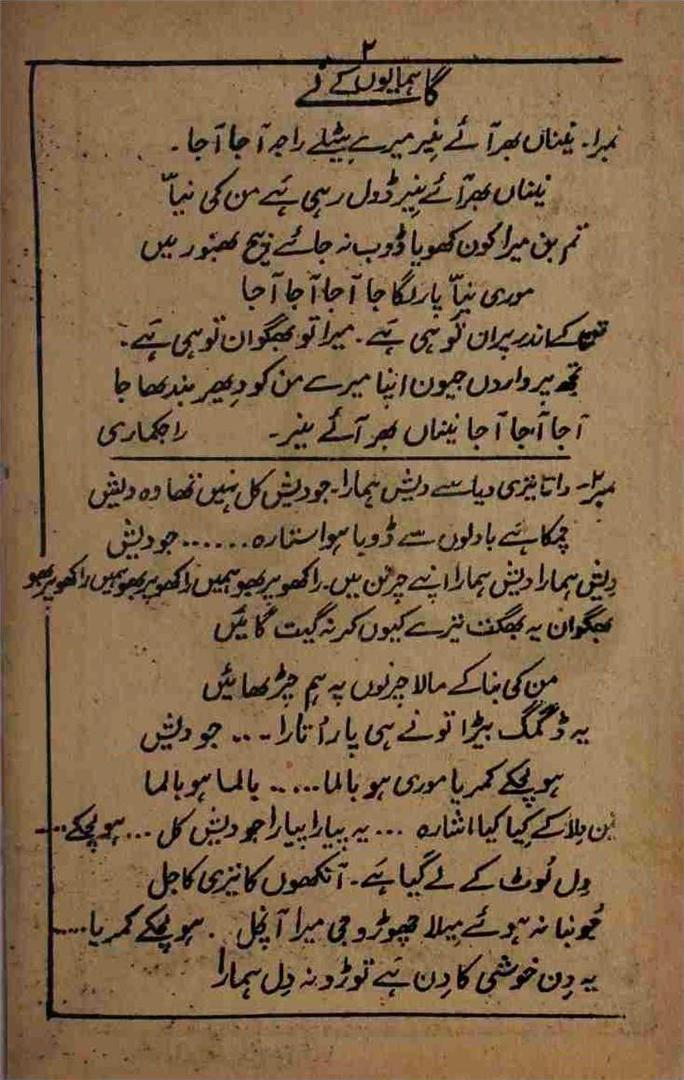 ۲
گا ہمایوں کے نے
نمبرا۔ نیناں بھر آئے نیر میرے ہٹیلے راجہ آ جا آ جا۔
نیناں بھر آئے نیر ڈول رہی ہے من کی نیّا
تم بن میرا کون کھویا ڈوب نہ جائے بیچ بھنور میں
موری نیّا پار لگا جا آ جا آ جا آ جا
کے اندر پران تو ہی ہے۔ میرا تو بھگوان تو ہی ہے۔
تجھ پر واردوں جیون اپنا میرے من کو دھیر بندھا جا
آ جا آ جا آ جا نیناں بھر آئے نیر۔ راجکماری
نمبر۲۔ داتا تیری دیا سے دیش ہمارا۔ جو دیش کل نہیں تھا وہ دیش
چمکا ہے بادلوں سے ڈوبا ہوا ستارہ ...... جو دیش
دیش ہمارا دیش ہمارا اپنے چرنن میں۔ راکھو پربھو ہمیں راکھو پربھو ہمیں راکھو پربھو
بھگوان یہ بھگت تیرے کیوں کر نہ گیت گائیں
من کی بنا کے مالا چرنوں پہ ہم چڑھائیں
یہ ڈگمگ بیڑا تو نے ہی پار اُتارا ... جو دیش
ہو لچکے کمریا موری ہو بالما ..... بالما ہو بالما
نین ملا کے کیا کیا اشارہ ... یہ پیارا پیارا جو دیش کل ... ہو لچکے ...
دل لُوٹ کے لے گیا ہے۔ آنکھوں کا تیری کاجل
نہ ہوئے میلا چھوڑو جی میرا آنچل . ہو لچکے کمریا .....
یہ دِن خوشی کا دِن ہے توڑو نہ دِل ہمارا